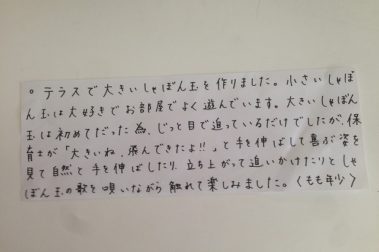 。テラスで大きいしゃぼん玉を作りました。小さいしゃぼ
ん玉は大好きでお部屋でよく遊んでいます。大きいしゃぼん
玉は初めてだった為、じっと目で追っているだけでしたが、保
育士が「大きいね、飛んできたよ!!」と手を伸ばして喜ぶ姿を
見て自然と手を伸ばしたり、立ち上がって追いかけたりとしゃ
ぼん玉の歌を唄いながら触れて楽しみました。〈もも年少〉